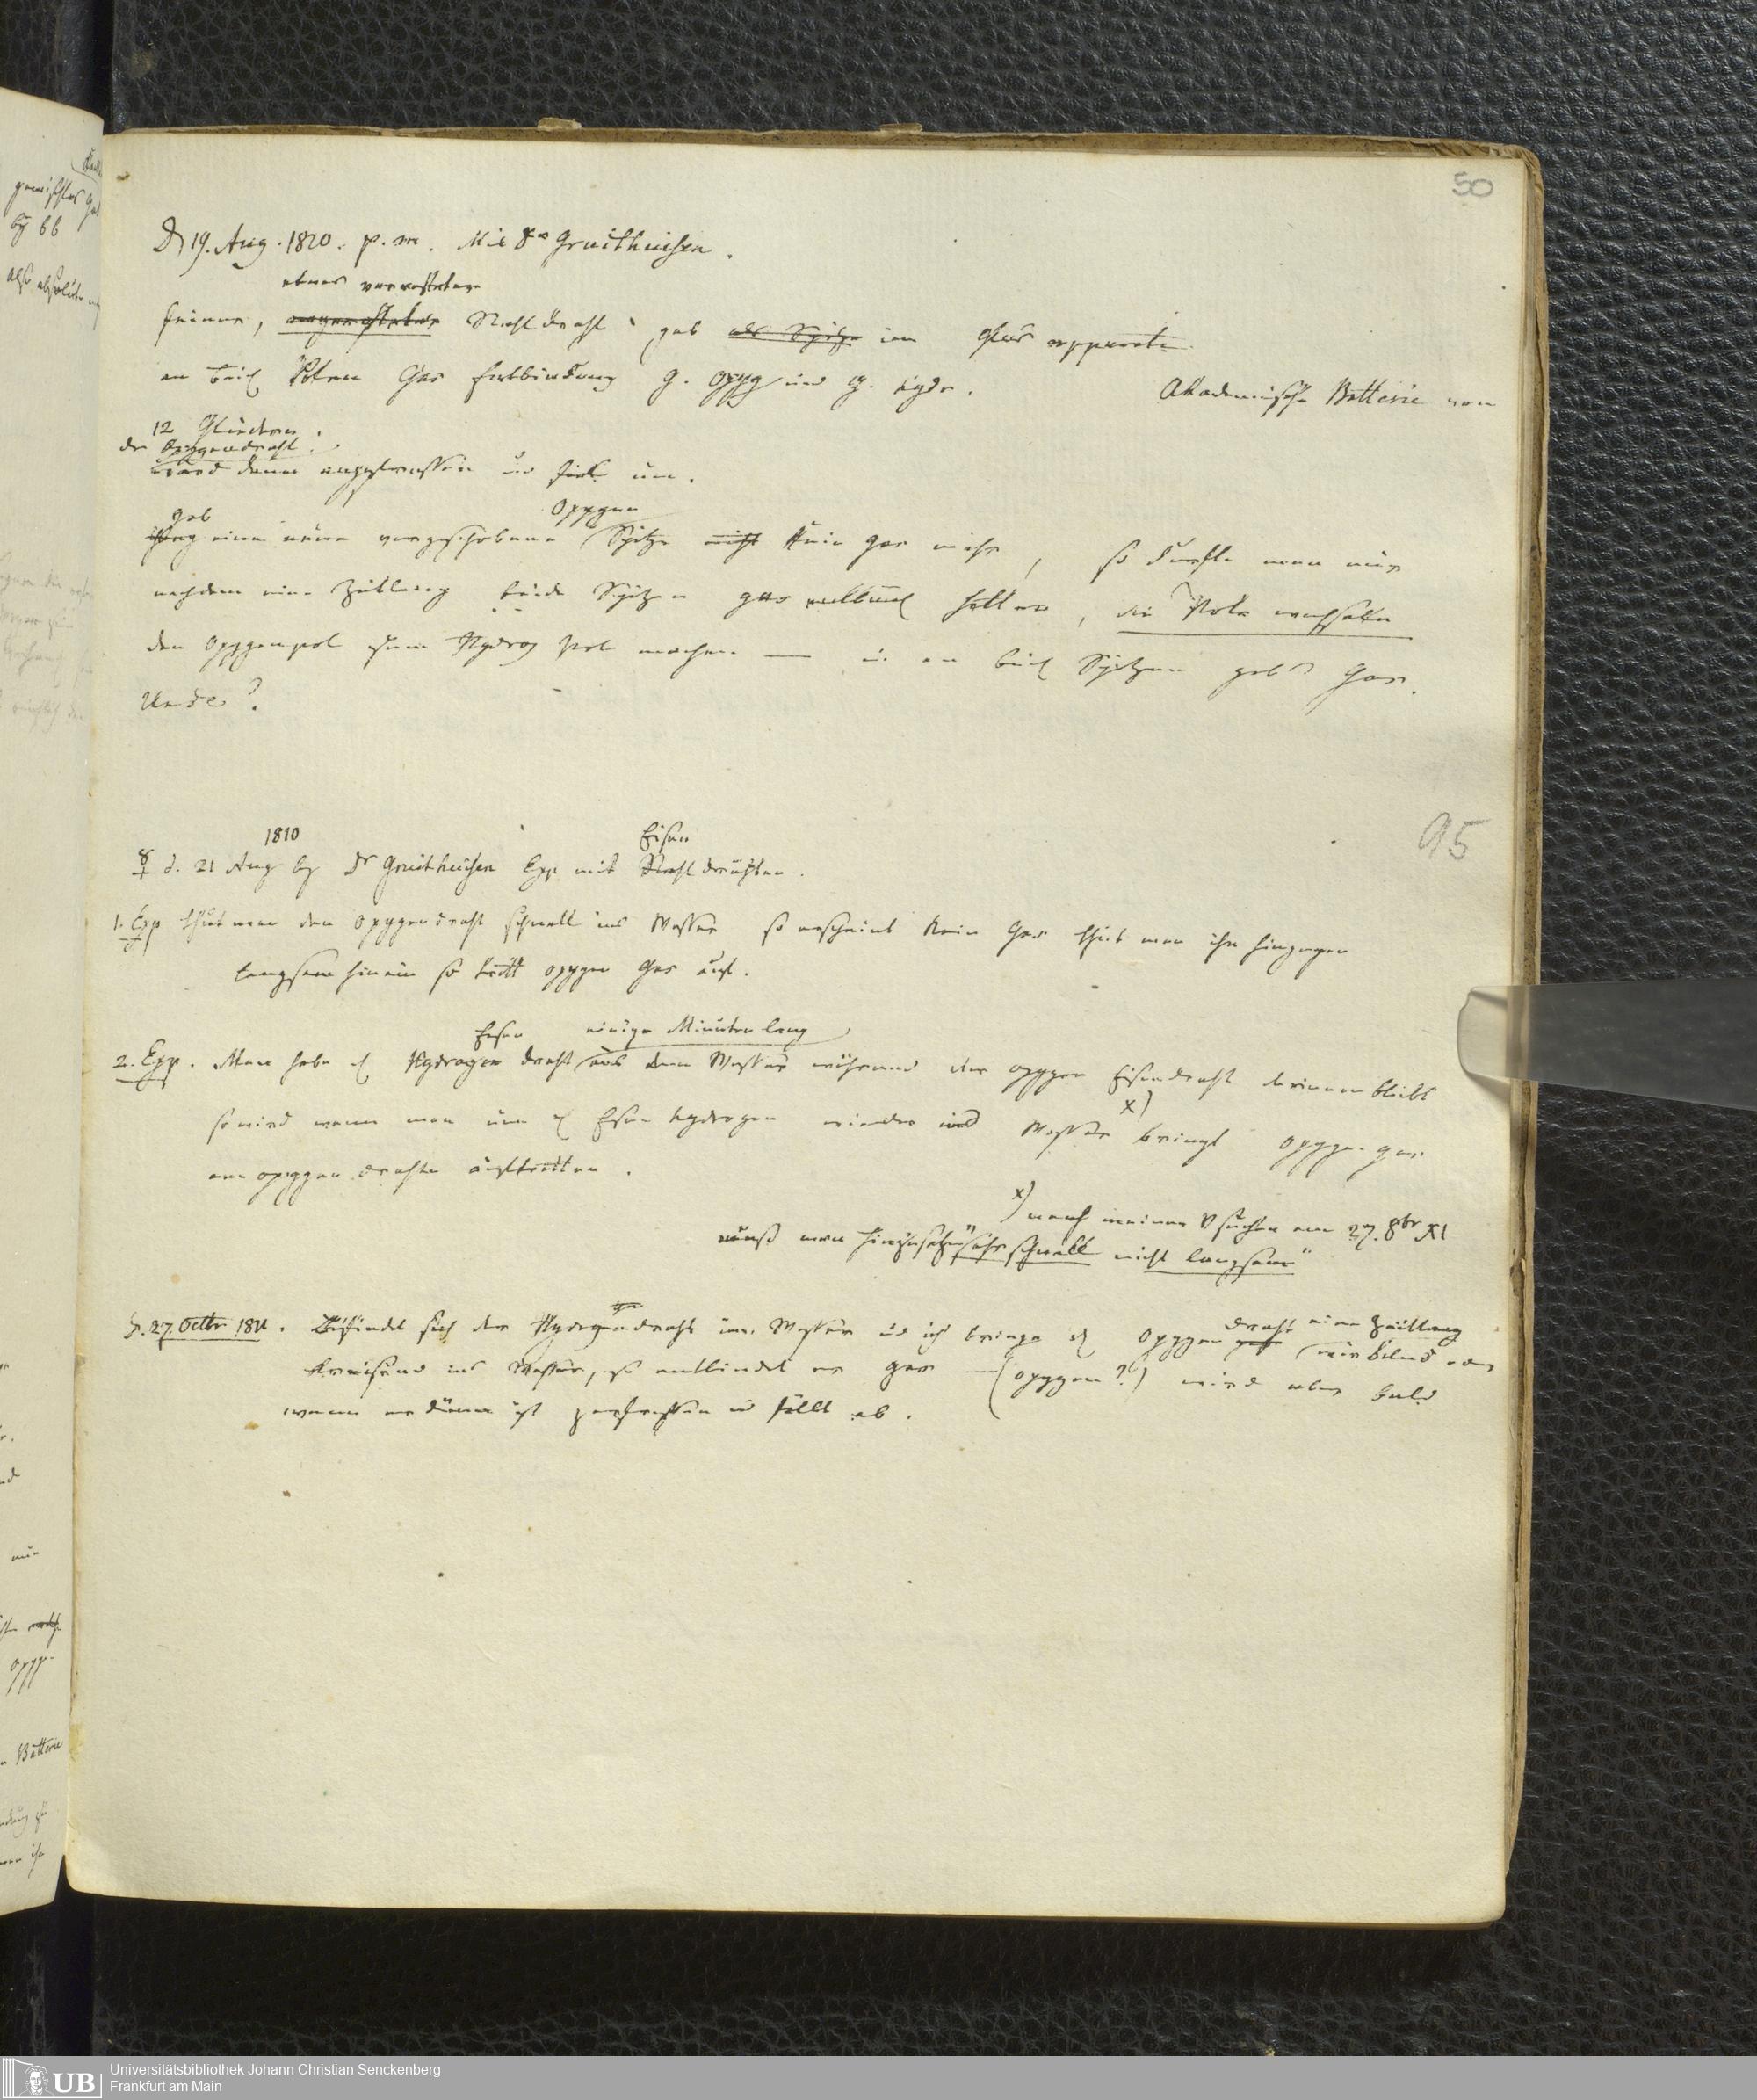 50
D 19. Aug. 1810. p. m. Mit Dr Gruithuisen.
etwas verrosteter
feiner, Stahldraht gab im Glas apparate
an beid Polen Gas Entbindung g. oxyg und g. hydr.
Akademische Batterie von
12 Gliedern.
der Oxygendraht.
ward dann angefressen und fiel um.
gab Oxygen
eine neue vorgeschobene Spitze nicht kein Gas mehr, so durfte man nur
nachdem eine Zeitlang beide Spitzen gas hatten, die Pole wechseln
den Oxygenpol zum Hydrog Pol machen — u an beid Spitzen gab's Gas.
95
1810 Eisen
☿ d. 21 Aug by Dr Gruithuisen Exp mit Stahldrähten.
1. Exp thut man den Oxygendraht schnell ins Wasser so erscheint kein Gas thut man ihn hingegen
langsam hinein so tritt oxygen Gas auf.
Eisen einige Minuten lang
2. Exp. Man hebe d Hydrogen draht aus dem Wasser während der oxygen Eisendraht darinnen bleibt
so wird wenn man nun d Eisen hydrogen wieder ins Wasser x) bringt oxygen gas
am oxygen drahte auftretten.
x) nach meinen Vsuchen am 27. 8br XI
muß man hinzusetzen "sehr schnell nicht langsam"
27. Octbr 1811. Befindet sich der Hydrogendraht im Wasser und ich bringe d Oxygen draht eine Zeitlang
wirbelnd oder
kreisend ins Wasser, so entbindet er gas — (oxygen?) wird aber bald
wenn er dünn ist zerfressen und fällt ab.
UB
Universitätsbibliothek Johann Christian Senckenberg
Frankfurt am Main